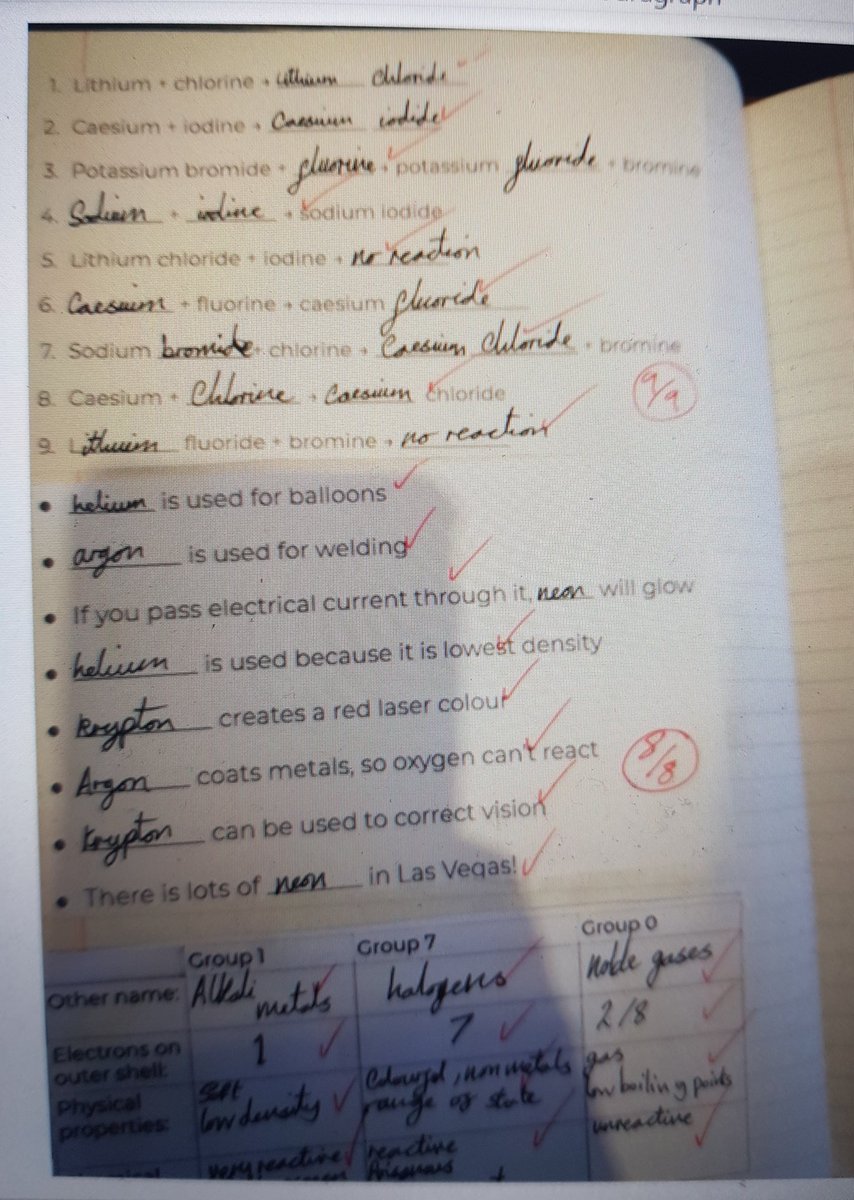 1. Lithium + chlorine → lithium chloride
2. Caesium + iodine → Caesium iodide
3. Potassium bromide + fluorine → potassium fluoride + bromine
4. Sodium + iodine → sodium iodide
5. Lithium chloride + iodine → no reaction
6. Caesium + fluorine → caesium fluoride
7. Sodium bromide + chlorine → Caesium Chloride + bromine
8. Caesium + Chlorine → Caesium chloride
9/9
9. Lithium fluoride + bromine → no reaction
• helium is used for balloons
• argon is used for welding
• If you pass electrical current through it, neon will glow
• helium is used because it is lowest density
• krypton creates a red laser colour
• Argon coats metals, so oxygen can't react
8/8
• krypton can be used to correct vision
• There is lots of neon in Las Vegas!
Group 1 Group 7 Group 0
Other name: Alkali metals halogens noble gases
Electrons on outer shell: 1 7 2/8
Physical properties: soft low density Coloured, non metals range of state gas low boiling points
very reactive reactive Poisonous unreactive